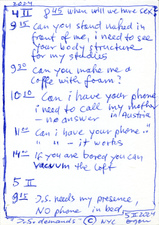 2024
4 II 8 45 when will we have sex?
9 15 can you stand naked in
front of me, i need to see
your body structure
for my studies
9 30 Can you make me a
coffe with foam?
10 20 Can i have your phone
i need to call my mother
– no answer in Austria
11 00 Can i have your phone..
" " – it works
14 00 if you are bored you can
vacuum the loft
5 II
9 15 D.S. needs my presence,
NO phone in bed,
"D.S. demands" © NYC 5 II 2024